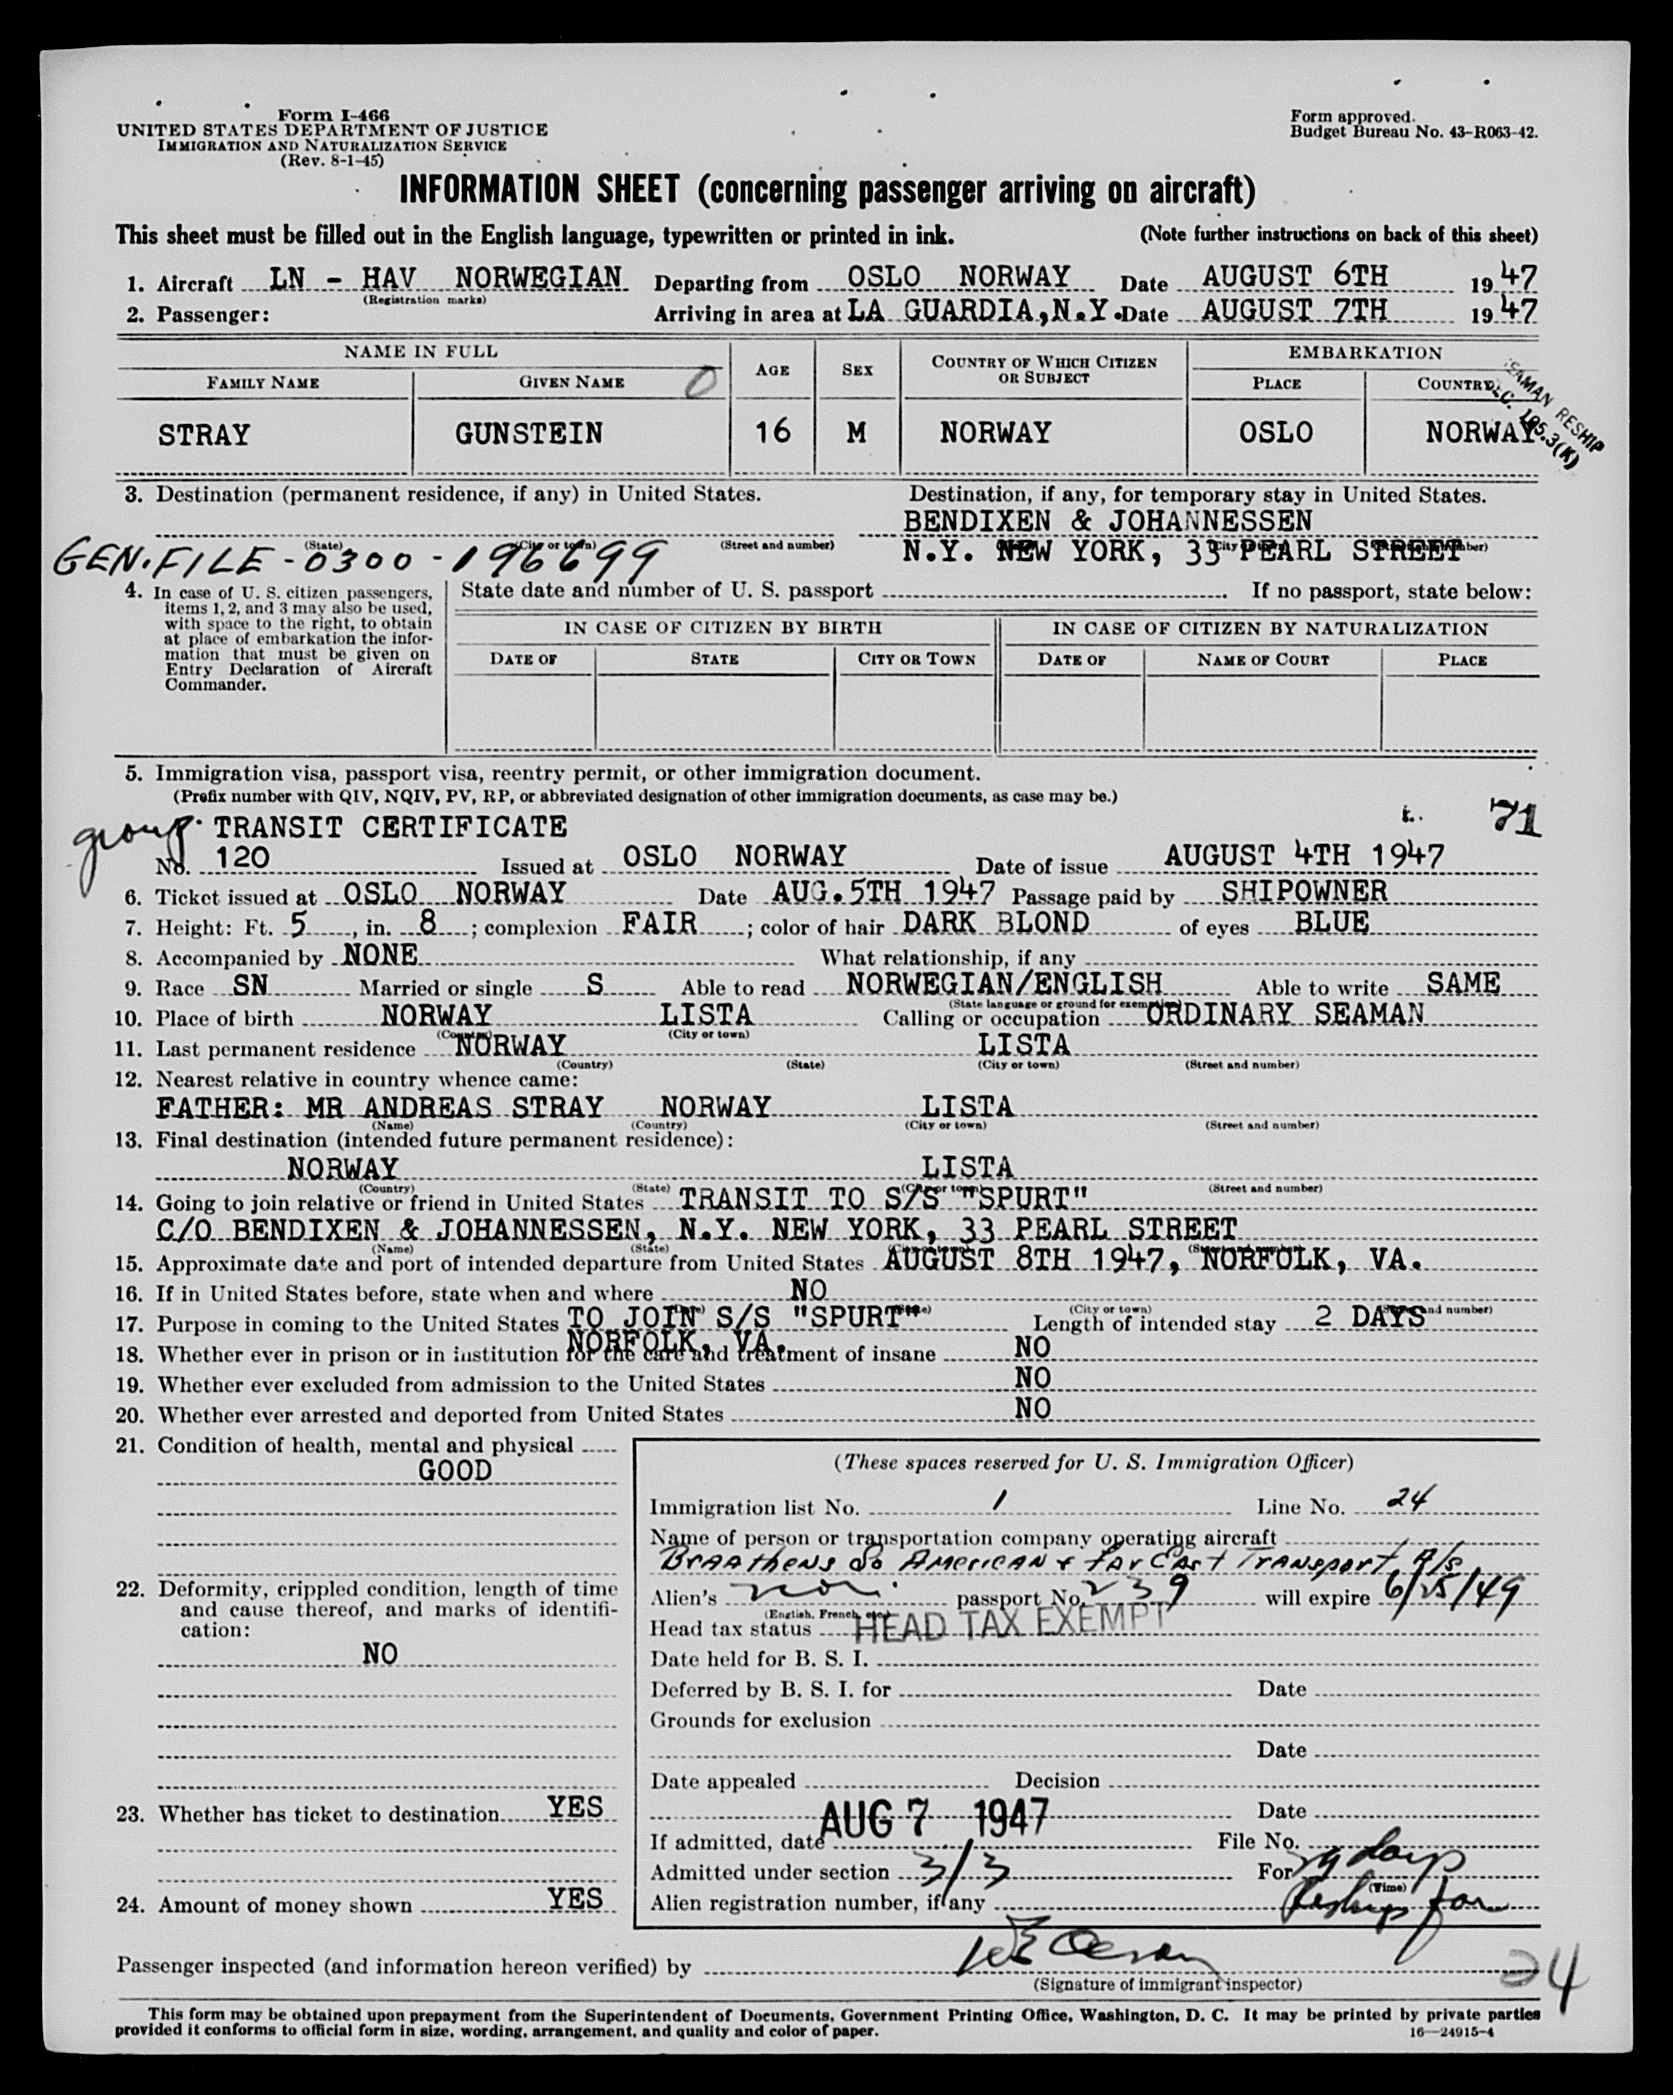 Form I-466
UNITED STATES DEPARTMENT OF JUSTICE
IMMIGRATION AND NATURALIZATION SERVICE
(Rev. 8-1-45)
Form approved.
Budget Bureau No. 43-R063-42.
INFORMATION SHEET (concerning passenger arriving on aircraft)
This sheet must be filled out in the English language, typewritten or printed in ink. (Note further instructions on back of this sheet)
1. Aircraft LN - HAV NORWEGIAN Departing from OSLO NORWAY Date AUGUST 6TH 1947
(Registration marks)
2. Passenger: Arriving in area at LA GUARDIA, N.Y. Date AUGUST 7TH 1947
NAME IN FULL AGE SEX COUNTRY OF WHICH CITIZEN OR SUBJECT EMBARKATION
FAMILY NAME GIVEN NAME 0 PLACE COUNTRY
SEAMAN RESHIP
SEC. 105.3(K)
STRAY GUNSTEIN 16 M NORWAY OSLO NORWAY
3. Destination (permanent residence, if any) in United States. Destination, if any, for temporary stay in United States.
BENDIXEN & JOHANNESSEN
(State) (City or town) (Street and number)
GEN. FILE - 0300 - 196699 N.Y. NEW YORK, 33 PEARL STREET
4. In case of U. S. citizen passengers, items 1, 2, and 3 may also be used, with space to the right, to obtain at place of embarkation the information that must be given on Entry Declaration of Aircraft Commander.
State date and number of U. S. passport If no passport, state below:
IN CASE OF CITIZEN BY BIRTH IN CASE OF CITIZEN BY NATURALIZATION
DATE OF STATE CITY OR TOWN DATE OF NAME OF COURT PLACE
5. Immigration visa, passport visa, reentry permit, or other immigration document.
(Prefix number with QIV, NQIV, PV, RP, or abbreviated designation of other immigration documents, as case may be.)
group TRANSIT CERTIFICATE t. 71
No. 120 Issued at OSLO NORWAY Date of issue AUGUST 4TH 1947
6. Ticket issued at OSLO NORWAY Date AUG. 5TH 1947 Passage paid by SHIPOWNER
7. Height: Ft. 5, in. 8; complexion FAIR; color of hair DARK BLOND of eyes BLUE
8. Accompanied by NONE What relationship, if any
9. Race SN Married or single S Able to read NORWEGIAN/ENGLISH Able to write SAME
(State language or ground for exemption)
10. Place of birth NORWAY LISTA Calling or occupation ORDINARY SEAMAN
(Country) (City or town)
11. Last permanent residence NORWAY LISTA
(Country) (State) (City or town) (Street and number)
12. Nearest relative in country whence came:
FATHER: MR ANDREAS STRAY NORWAY LISTA
(Name) (Country) (City or town) (Street and number)
13. Final destination (intended future permanent residence):
NORWAY LISTA
(Country) (State) (City or town) (Street and number)
14. Going to join relative or friend in United States TRANSIT TO S/S "SPURT"
C/O BENDIXEN & JOHANNESSEN, N.Y. NEW YORK, 33 PEARL STREET
(Name) (State) (City or town) (Street and number)
15. Approximate date and port of intended departure from United States AUGUST 8TH 1947, NORFOLK, VA.
16. If in United States before, state when and where NO
(Date) (State) (City or town) (Street and number)
17. Purpose in coming to the United States TO JOIN S/S "SPURT" Length of intended stay 2 DAYS
NORFOLK, VA.
18. Whether ever in prison or in institution for the care and treatment of insane NO
19. Whether ever excluded from admission to the United States NO
20. Whether ever arrested and deported from United States NO
21. Condition of health, mental and physical
GOOD
22. Deformity, crippled condition, length of time and cause thereof, and marks of identification:
NO
23. Whether has ticket to destination YES
24. Amount of money shown YES
(These spaces reserved for U. S. Immigration Officer)
Immigration list No. 1 Line No. 24
Name of person or transportation company operating aircraft
Braathens So American & Far East Transport, A/S
Alien's nor. passport No. 239 will expire 6/25/49
(English, French, etc.)
Head tax status HEAD TAX EXEMPT
Date held for B. S. I.
Deferred by B. S. I. for Date
Grounds for exclusion
Date
Date appealed Decision
Date
If admitted, date AUG 7 1947 File No.
Admitted under section 3/3 For 29 days
(Time)
Alien registration number, if any Reship for
Passenger inspected (and information hereon verified) by
(Signature of immigrant inspector)
24
This form may be obtained upon prepayment from the Superintendent of Documents, Government Printing Office, Washington, D. C. It may be printed by private parties
provided it conforms to official form in size, wording, arrangement, and quality and color of paper.
16—24915-4